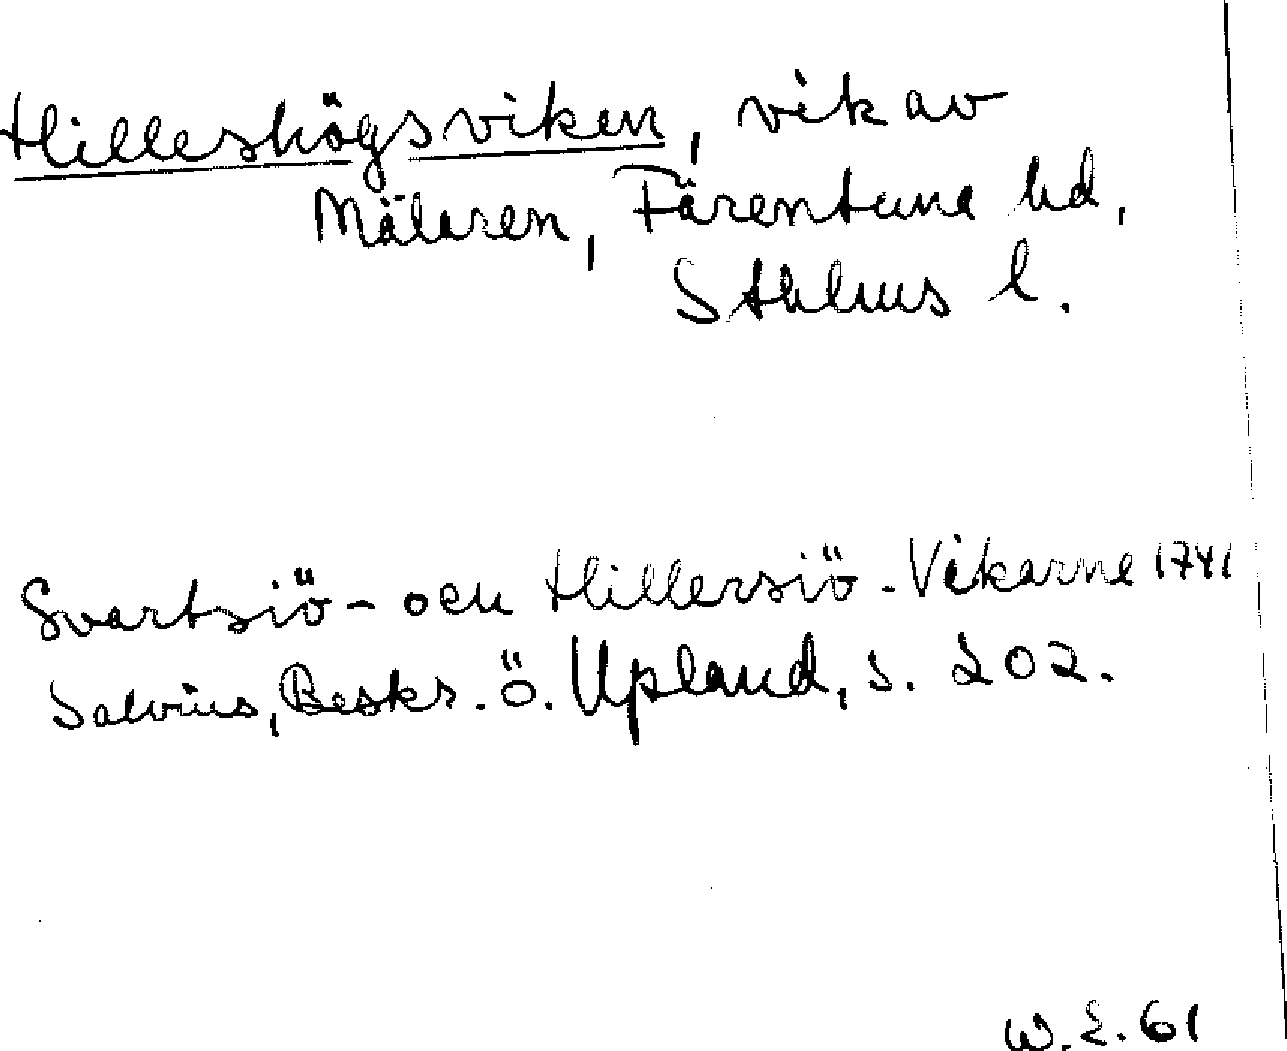 Hilleshögsviken, vik av
Mälaren, Färentuna hd,
Sthlms l.
Svartsiö- och Hillersiö-Vikarne 1741
Salvius, Beskr. ö. Upland, s. 202.
W.E. 61